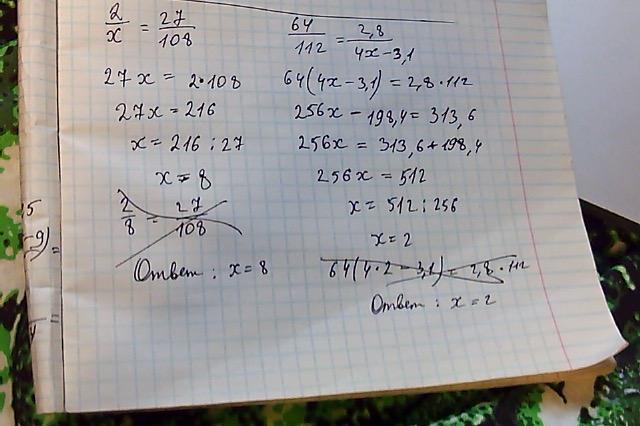 2/x = 27/108
27x = 2·108
27x = 216
x = 216 : 27
x = 8
2/8 = 27/108
Ответ : x = 8
64/112 = 2,8/4x-3,1
64(4x-3,1) = 2,8·112
256x - 198,4 = 313,6
256x = 313,6+198,4
256x = 512
x = 512 : 256
x = 2
64(4·2-3,1) = 2,8·112
Ответ : x = 2
5
-9) =
=